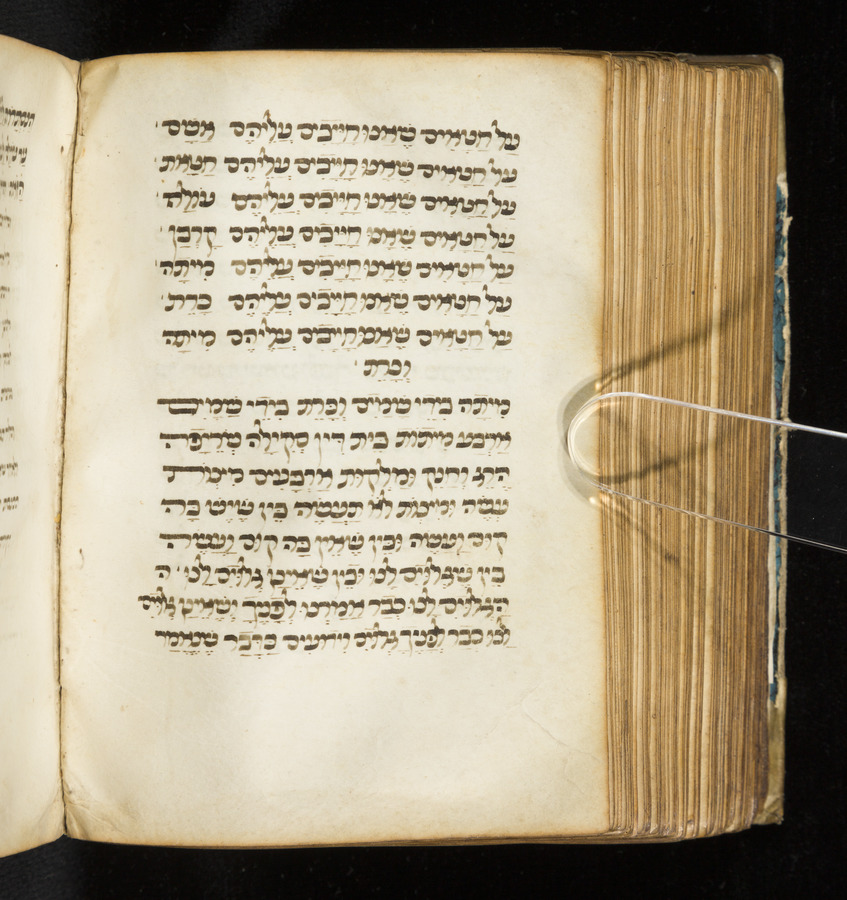 על חטאים שאנו חייבים עליהם אשם
על חטאים שאנו חייבים עליהם חטאת
על חטאים שאנו חייבים עליהם עולה
על חטאים שאנו חייבים עליהם קרבן
על חטאים שאנו חייבים עליהם מיתה
על חטאים שאנו חייבים עליהם כרת
על חטאים שאנו חייבים עליהם מיתה
וכרת
מיתה בידי שמים וכרת בידי שמים
ארבע מיתות בית דין סקילה שריפה
הרג וחנק ומלקות ארבעים מיצות
עשה ומיצות לא תעשה בין שיש בה
קום ועשה ובין שאין בה קום ועשה
בין שגלוים לנו ובין שאינן גלוים לנו ה
הגלוים לנו כבר אמרנו לפניך ושאינן גלוים
לנו כבר לפניך גלוים וידועים כדבר שנאמר